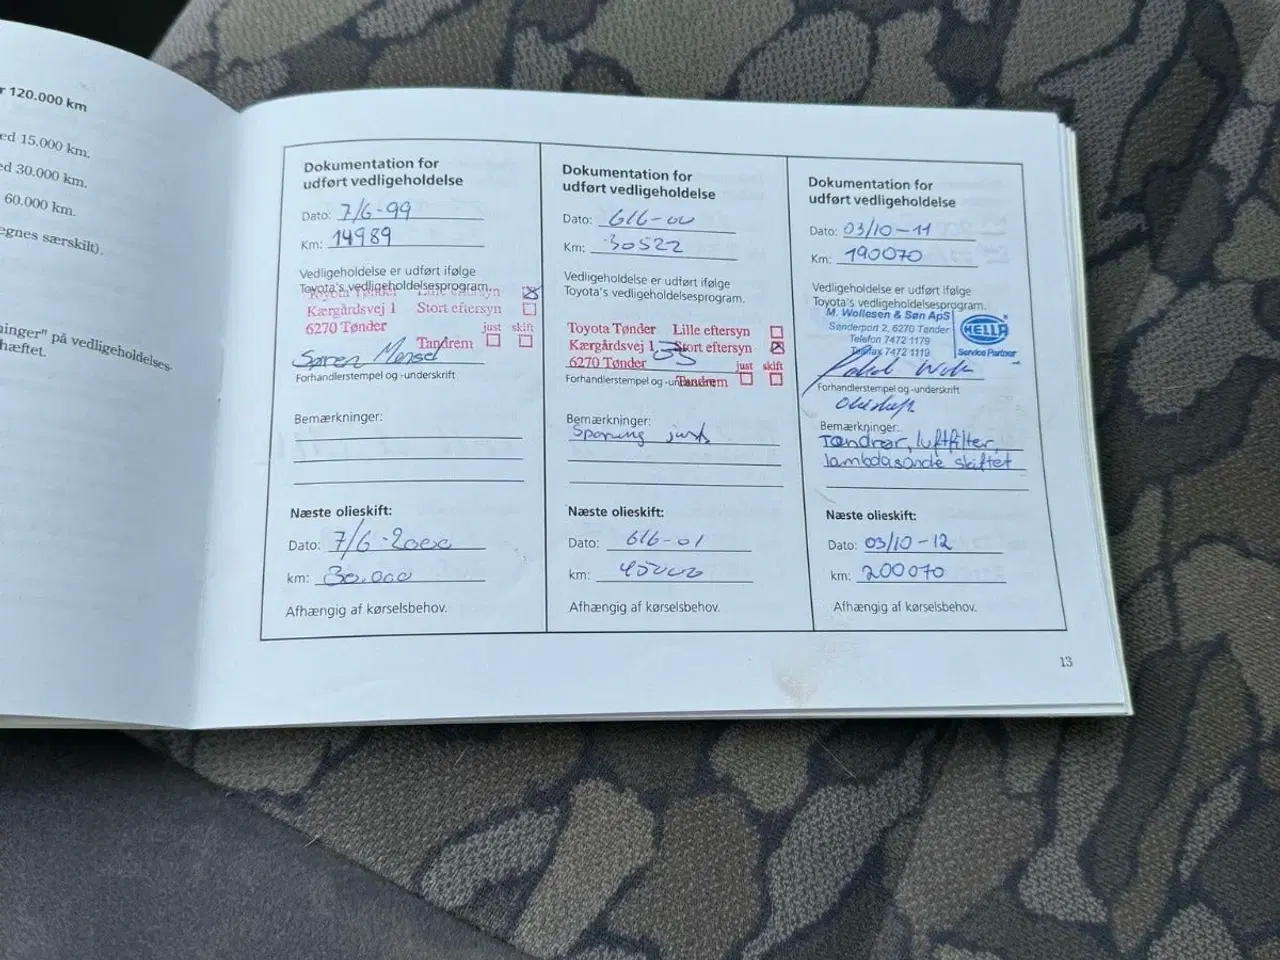 r 120.000 km
ed 15.000 km.
ed 30.000 km.
60.000 km.
egnes særskilt).
ninger" på vedligeholdelses-
hæftet.
Dokumentation for
udført vedligeholdelse
Dato: 7/6-99
Km: 14989
Vedligeholdelse er udført ifølge
Toyota's vedligeholdelsesprogram.
Toyota Tønder Lille eftersyn
Kærgårdsvej 1 Stort eftersyn
6270 Tønder just skift
Tandrem
Forhandlerstempel og -underskrift
Bemærkninger:
Næste olieskift:
Dato: 7/6-2000
km: 30.000
Afhængig af kørselsbehov.
Dokumentation for
udført vedligeholdelse
Dato: 6/6-00
Km: 30522
Vedligeholdelse er udført ifølge
Toyota's vedligeholdelsesprogram.
Toyota Tønder Lille eftersyn
Kærgårdsvej 1 Stort eftersyn
6270 Tønder just skift
Forhandlerstempel og -underskrift Tandrem
Bemærkninger:
Næste olieskift:
Dato: 6/6-01
km: 45000
Afhængig af kørselsbehov.
Dokumentation for
udført vedligeholdelse
Dato: 03/10-11
Km: 190070
Vedligeholdelse er udført ifølge
Toyota's vedligeholdelsesprogram.
M. Wollesen & Søn ApS
Sønderport 2, 6270 Tønder
Telefon 7472 1179
Telefax 7472 1119
HELLA
Service Partner
Forhandlerstempel og -underskrift
Olieskift
Bemærkninger:
Tændrør, luftfilter,
lambdasonde skiftet
Næste olieskift:
Dato: 03/10-12
km: 200070
Afhængig af kørselsbehov.
13